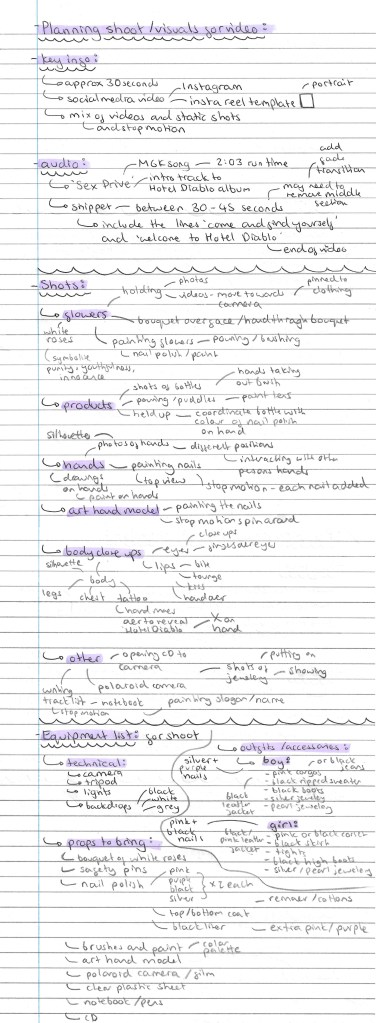 - Planning shoot/visuals for video:
- key info:
approx 30 seconds
Instagram
portrait
social media video
insta reel template
mix of videos and static shots
and stop motion
- audio:
MGK song - 2:03 run time
add fade transition
'Sex Drive'
intro track to Hotel Diablo album
may need to remove middle section
snippet - between 30-45 seconds
include the lines 'come and find yourself'
and 'welcome to Hotel Diablo'
end of video
- Shots:
holding
photos
videos - move towards camera
pinned to clothing
flowers
bouquet over face / hand through bouquet
white roses
symbolise purity, youthfulness, innocence
painting flowers - pouring / brushing
nail polish / paint
products
shots of bottles
hands taking out brush
pouring / puddles - paint lens
held up - coordinate bottle with colour of nail polish on hand
silhouettes
photos of hands - different positions
interacting with other persons hands
hands - painting nails
drawings on hands
top view
stop motion - each nail added
paint on hands
art hand model - painting the nails
stop motion spin around
body close ups
eyes
close ups
fingers over eye
lips - bite
tounge
kiss
hand over
silhouette
body
legs
chest
tattoo
hand moves
to reveal Hotel Diablo
X on hand
other
opening CD to camera
shots of jewellery
putting on
showing
polaroid camera
writing track list - notebook
painting slogan/name
stop motion
- Equipment list: for shoot
technical:
camera
tripod
lights
backdrops
black
white
grey
outfits / accessories:
silver + purple nails
boy:
or black jeans
- pink cargos
- black ripped sweater
- black boots
- silver jewellery
- pearl jewellery
black leather jacket
pink + black nails
girl:
black / pink leather jacket
- pink or black
- black skirt
- tights
- black high boots
- silver / pearl jewellery
props to bring:
bouquet of white roses
safety pins
nail polish
pink
purple
black
silver
x2 each
remover / cottons
top/bottom coat
black liner
extra pink / purple
brushes and paint - color palette
art hand model
polaroid camera / film
clear plastic sheet
notebook / pens
CD